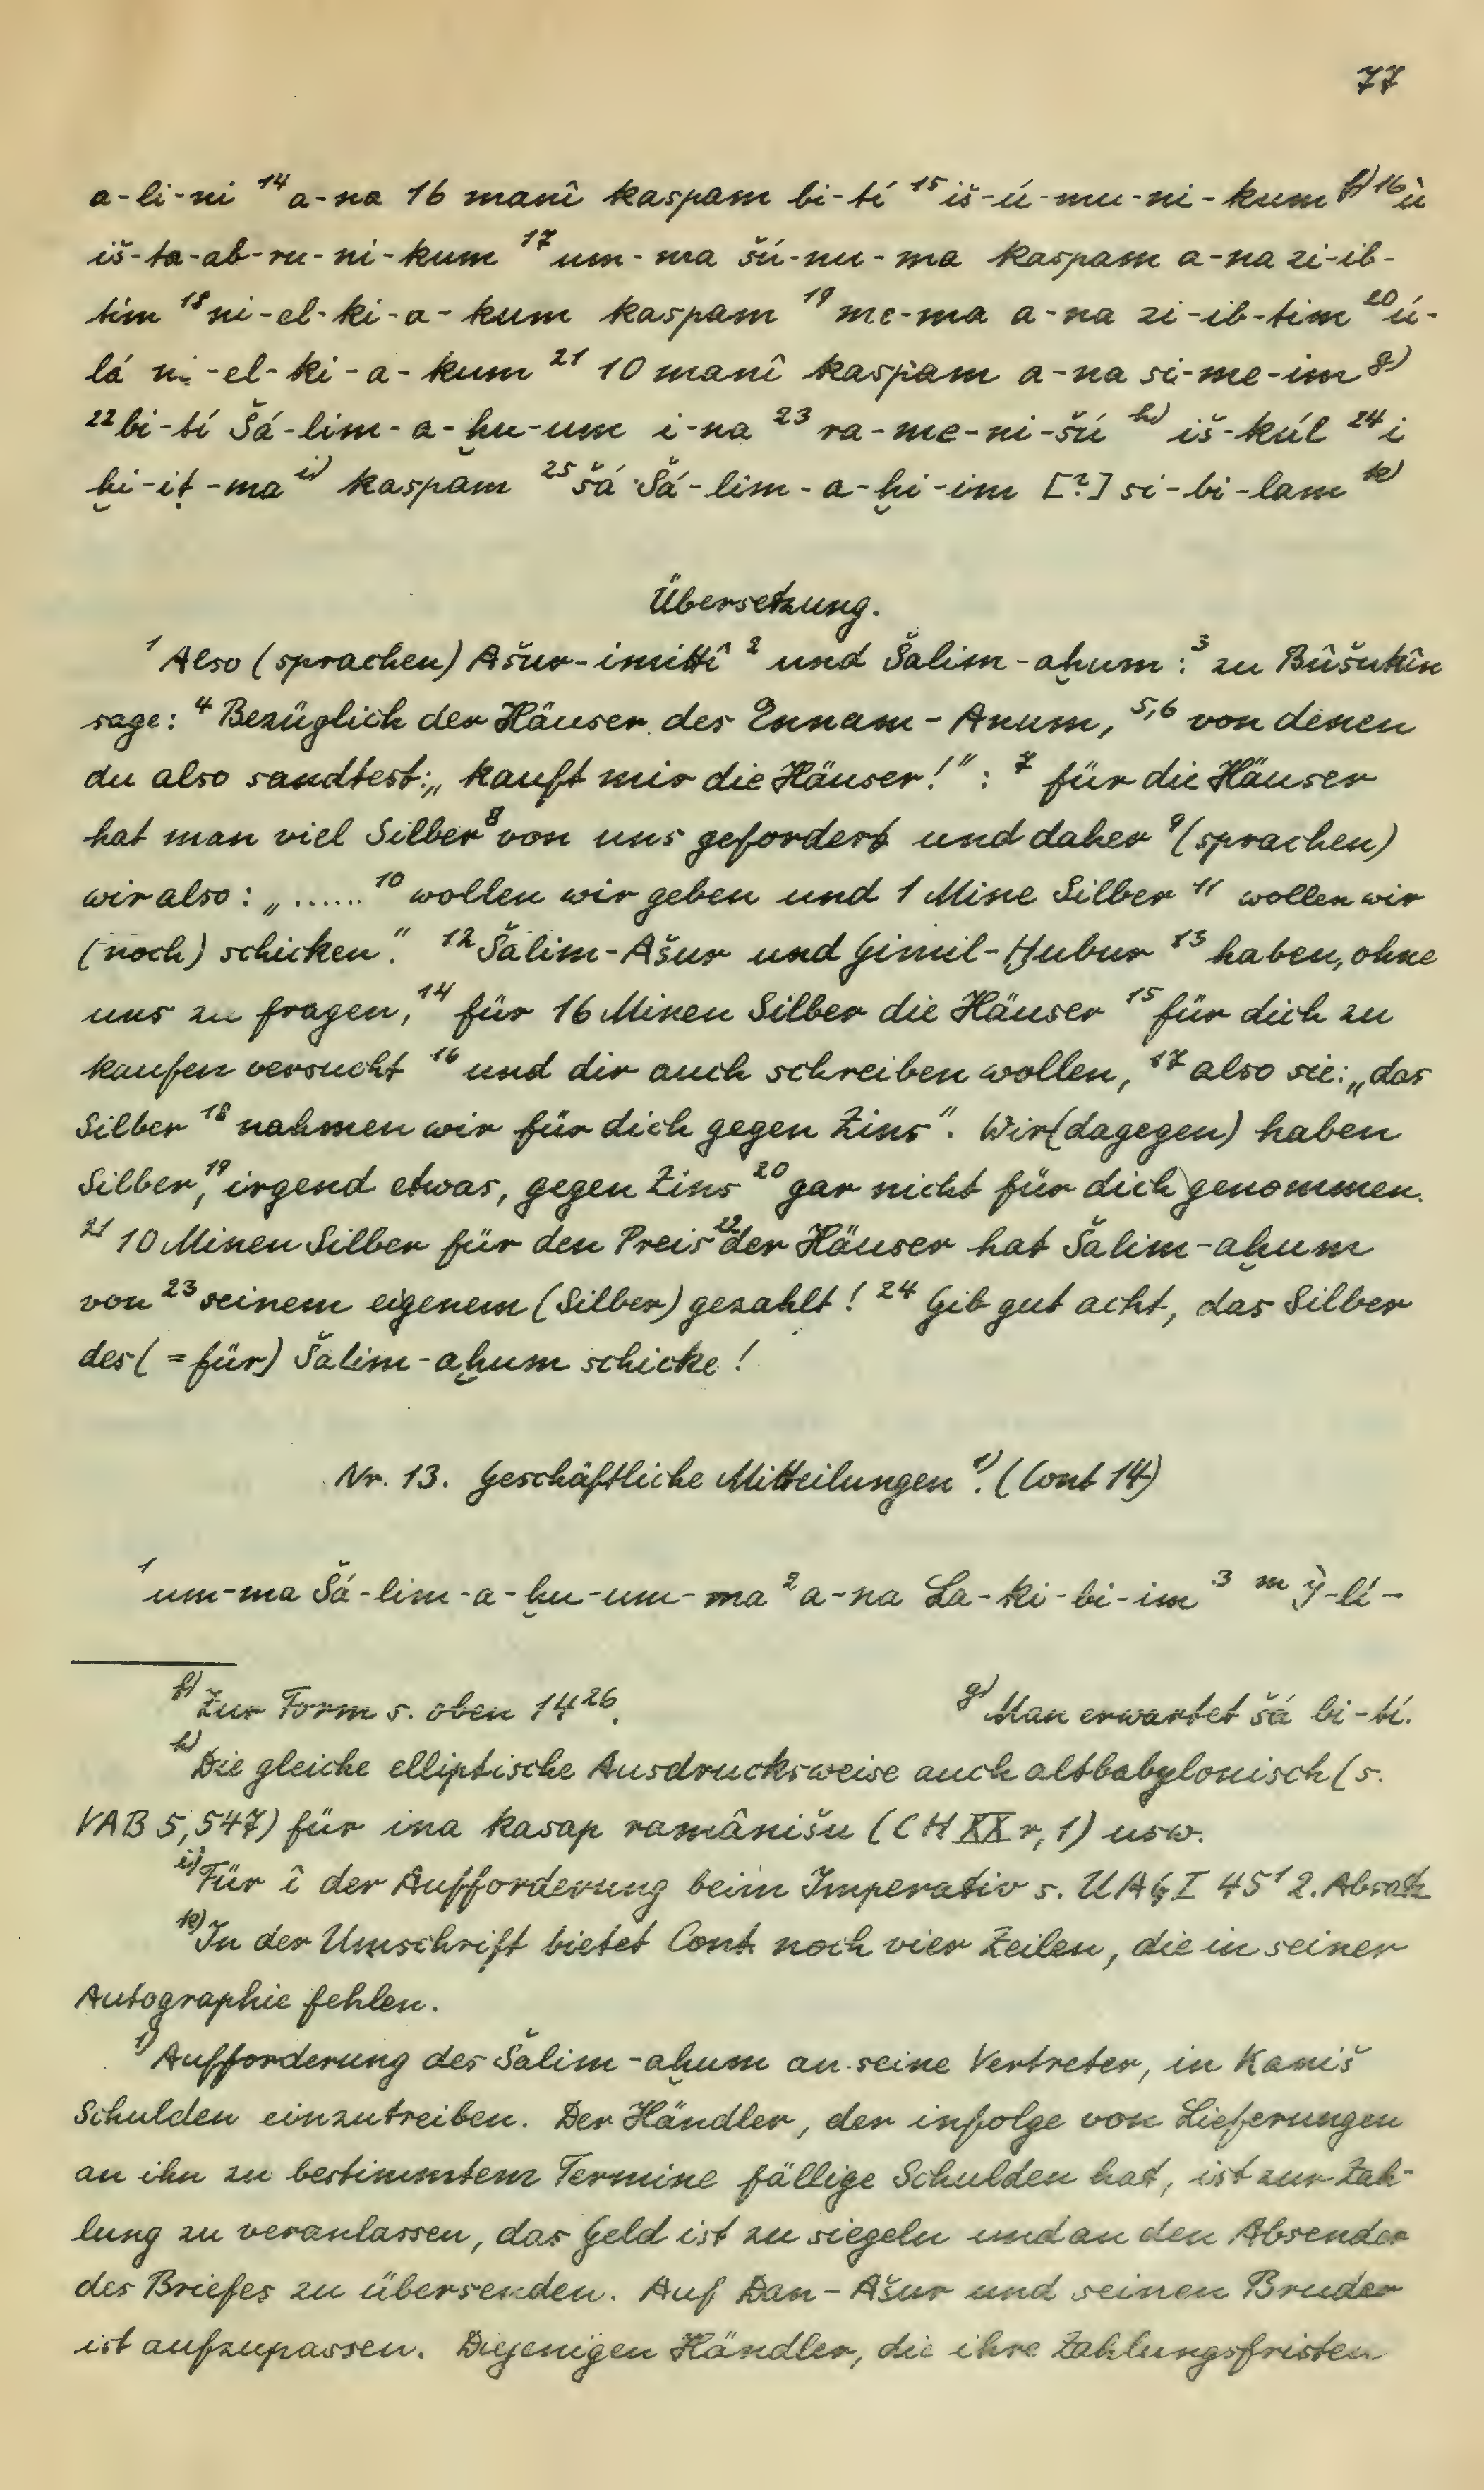 77
a-li-ni ¹⁴a-na 16 manî kaspam bi-tí ¹⁵iš-ú-mu-ni-kum ᶠ⁾ ¹⁶ù
iš-ta-ab-ru-ni-kum ¹⁷um-ma šú-nu-ma kaspam a-na zi-ib-
tim ¹⁸ni-el-ki-a-kum kaspam ¹⁹me-ma a-na zi-ib-tim ²⁰ú-
lá ni-el-ki-a-kum ²¹ 10 manî kaspam a-na si-me-im ᵍ⁾
²²bi-tí Šá-lim-a-ḫu-um i-na ²³ra-me-ni-šú ʰ⁾ iš-kúl ²⁴i
ḫi-iṭ-ma ⁱ⁾ kaspam ²⁵šá Šá-lim-a-ḫi-im [?] si-bi-lam ᵏ⁾
Übersetzung.
¹Also (sprachen) Ašur-imittî ² und Šalim-aḫum: ³ zu Bûšukîn
sage: ⁴Bezüglich der Häuser des Ennam-Anum, ⁵,⁶ von denen
du also sandtest: „kauft mir die Häuser!": ⁷ für die Häuser
hat man viel Silber ⁸von uns gefordert und daher ⁹(sprachen)
wir also: „...... ¹⁰wollen wir geben und 1 Mine Silber ¹¹ wollen wir
(noch) schicken." ¹²Šalim-Ašur und Gimil-Ḫubur ¹³ haben, ohne
uns zu fragen, ¹⁴ für 16 Minen Silber die Häuser ¹⁵für dich zu
kaufen versucht ¹⁶und dir auch schreiben wollen, ¹⁷also sie: „das
Silber ¹⁸ nahmen wir für dich gegen Zins". Wir (dagegen) haben
Silber, ¹⁹irgend etwas, gegen Zins ²⁰gar nicht für dich genommen.
²¹ 10 Minen Silber für den Preis ²²der Häuser hat Šalim-aḫum
von ²³seinem eigenem (Silber) gezahlt! ²⁴Gib gut acht, das Silber
des (=für) Šalim-aḫum schicke!
Nr. 13. Geschäftliche Mitteilungen ¹⁾. (Cont 14)
¹um-ma Šá-lim-a-ḫu-um-ma ²a-na La-ki-bi-im ³ ᵐ Ì-lí-
ᶠ⁾Zur Form s. oben 14²⁶. ᵍ⁾Man erwartet šá bi-tí.
ʰ⁾Die gleiche elliptische Ausdrucksweise auch altbabylonisch (s.
VAB 5, 547) für ina kasap ramânišu (CH XX r, 1) usw.
ⁱ⁾Für î der Aufforderung beim Imperativ s. UAG I 45¹ 2. Absatz
ᵏ⁾In der Umschrift bietet Cont. noch vier Zeilen, die in seiner
Autographie fehlen.
¹⁾Aufforderung des Šalim-aḫum an seine Vertreter, in Kaniš
Schulden einzutreiben. Der Händler, der infolge von Lieferungen
an ihn zu bestimmtem Termine fällige Schulden hat, ist zur Zah-
lung zu veranlassen, das Geld ist zu siegeln und an den Absender
des Briefes zu übersenden. Auf Dan-Ašur und seinen Bruder
ist aufzupassen. Diejenigen Händler, die ihre Zahlungsfristen